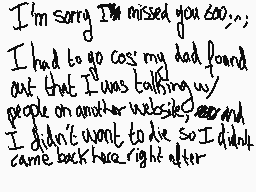 I'm sorry I missed you too,,,
I had to go cos' my dad found
out that I was talking w/
people on another website, and
I didn't want to die so I didn't
came back here right after